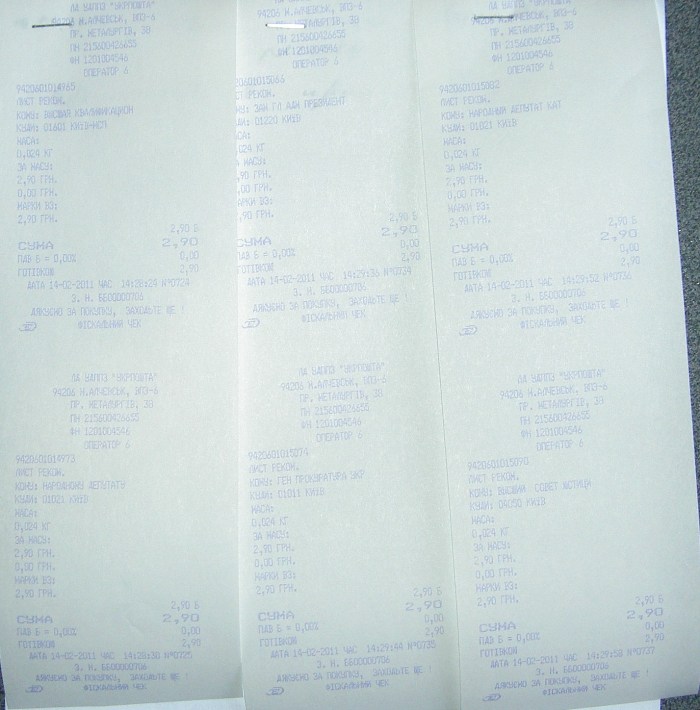 ЛА УАППЗ "УКРПОШТА"
94206 М.АЛЧЕВСЬК, ВПЗ-6
ПР. МЕТАЛУРГІВ, 3В
ПН 215600426655
ФН 1201004546
ОПЕРАТОР 6
9420601014965
ЛИСТ РЕКОМ.
КОМУ: ВИСШИЙ КВАЛИФИКАЦИОН
КУДИ: 01601 КИЇВ-МСП
МАСА:
0,024 КГ
ЗА МАСУ:
2,90 ГРН.
0,00 ГРН.
МАРКИ ВЗ:
2,90 ГРН.
2,90 Б
СУМА 2,90
ПДВ Б = 0,00% 0,00
ГОТІВКОЮ 2,90
ДАТА 14-02-2011 ЧАС 14:28:24 №0724
З. Н. ББ00000706
ДЯКУЄМО ЗА ПОКУПКУ, ЗАХОДЬТЕ ЩЕ !
ФІСКАЛЬНИЙ ЧЕК
ЛА УАППЗ "УКРПОШТА"
94206 М.АЛЧЕВСЬК, ВПЗ-6
ПР. МЕТАЛУРГІВ, 3В
ПН 215600426655
ФН 1201004546
ОПЕРАТОР 6
9420601014973
ЛИСТ РЕКОМ.
КОМУ: НАРОДНОМУ ДЕПУТАТУ
КУДИ: 01021 КИЇВ
МАСА:
0,024 КГ
ЗА МАСУ:
2,90 ГРН.
0,00 ГРН.
МАРКИ ВЗ:
2,90 ГРН.
2,90 Б
СУМА 2,90
ПДВ Б = 0,00% 0,00
ГОТІВКОЮ 2,90
ДАТА 14-02-2011 ЧАС 14:28:30 №0725
З. Н. ББ00000706
ДЯКУЄМО ЗА ПОКУПКУ, ЗАХОДЬТЕ ЩЕ !
ФІСКАЛЬНИЙ ЧЕК
"УКРПОШТА"
М.АЛЧЕВСЬК, ВПЗ-6
МЕТАЛУРГІВ, 3В
ПН 215600426655
ФН 1201004546
ОПЕРАТОР 6
20601015066
СТ РЕКОМ.
МУ: ЗАМ ГЛ АДМ ПРЕЗИДЕНТ
ДИ: 01220 КИЇВ
СА:
024 КГ
А МАСУ:
,90 ГРН.
,00 ГРН.
АРКИ ВЗ:
,90 ГРН.
2,90 Б
СУМА 2,90
ПДВ Б = 0,00% 0,00
ГОТІВКОЮ 2,90
ДАТА 14-02-2011 ЧАС 14:29:36 №0734
З. Н. ББ00000706
ДЯКУЄМО ЗА ПОКУПКУ, ЗАХОДЬТЕ ЩЕ !
ФІСКАЛЬНИЙ ЧЕК
ЛА УАППЗ "УКРПОШТА"
94206 М.АЛЧЕВСЬК, ВПЗ-6
ПР. МЕТАЛУРГІВ, 3В
ПН 215600426655
ФН 1201004546
ОПЕРАТОР 6
9420601015074
ЛИСТ РЕКОМ.
КОМУ: ГЕН ПРОКУРАТУРА УКР
КУДИ: 01011 КИЇВ
МАСА:
0,024 КГ
ЗА МАСУ:
2,90 ГРН.
0,00 ГРН.
МАРКИ ВЗ:
2,90 ГРН.
2,90 Б
СУМА 2,90
ПДВ Б = 0,00% 0,00
ГОТІВКОЮ 2,90
ДАТА 14-02-2011 ЧАС 14:29:44 №0735
З. Н. ББ00000706
ДЯКУЄМО ЗА ПОКУПКУ, ЗАХОДЬТЕ ЩЕ !
ФІСКАЛЬНИЙ ЧЕК
ЛА УАППЗ "УКРПОШТА"
М.АЛЧЕВСЬК, ВПЗ-6
ПР. МЕТАЛУРГІВ, 3В
ПН 215600426655
ФН 1201004546
ОПЕРАТОР 6
9420601015082
ЛИСТ РЕКОМ.
КОМУ: НАРОДНИЙ ДЕПУТАТ КАТ
КУДИ: 01021 КИЇВ
МАСА:
0,024 КГ
ЗА МАСУ:
2,90 ГРН.
0,00 ГРН.
МАРКИ ВЗ:
2,90 ГРН.
2,90 Б
СУМА 2,90
ПДВ Б = 0,00% 0,00
ГОТІВКОЮ 2,90
ДАТА 14-02-2011 ЧАС 14:29:52 №0736
З. Н. ББ00000706
ДЯКУЄМО ЗА ПОКУПКУ, ЗАХОДЬТЕ ЩЕ !
ФІСКАЛЬНИЙ ЧЕК
ЛА УАППЗ "УКРПОШТА"
94206 М.АЛЧЕВСЬК, ВПЗ-6
ПР. МЕТАЛУРГІВ, 3В
ПН 215600426655
ФН 1201004546
ОПЕРАТОР 6
9420601015090
ЛИСТ РЕКОМ.
КОМУ: ВИСШИЙ СОВЕТ ЮСТИЦИ
КУДИ: 04050 КИЇВ
МАСА:
0,024 КГ
ЗА МАСУ:
2,90 ГРН.
0,00 ГРН.
МАРКИ ВЗ:
2,90 ГРН.
2,90 Б
СУМА 2,90
ПДВ Б = 0,00% 0,00
ГОТІВКОЮ 2,90
ДАТА 14-02-2011 ЧАС 14:29:58 №0737
З. Н. ББ00000706
ДЯКУЄМО ЗА ПОКУПКУ, ЗАХОДЬТЕ ЩЕ !
ФІСКАЛЬНИЙ ЧЕК